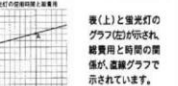 灯の使用時間と総費用
表(上)と蛍光灯の
グラフ(左)が示され、
総費用と時間の関
係が、直線グラフで
示されています。